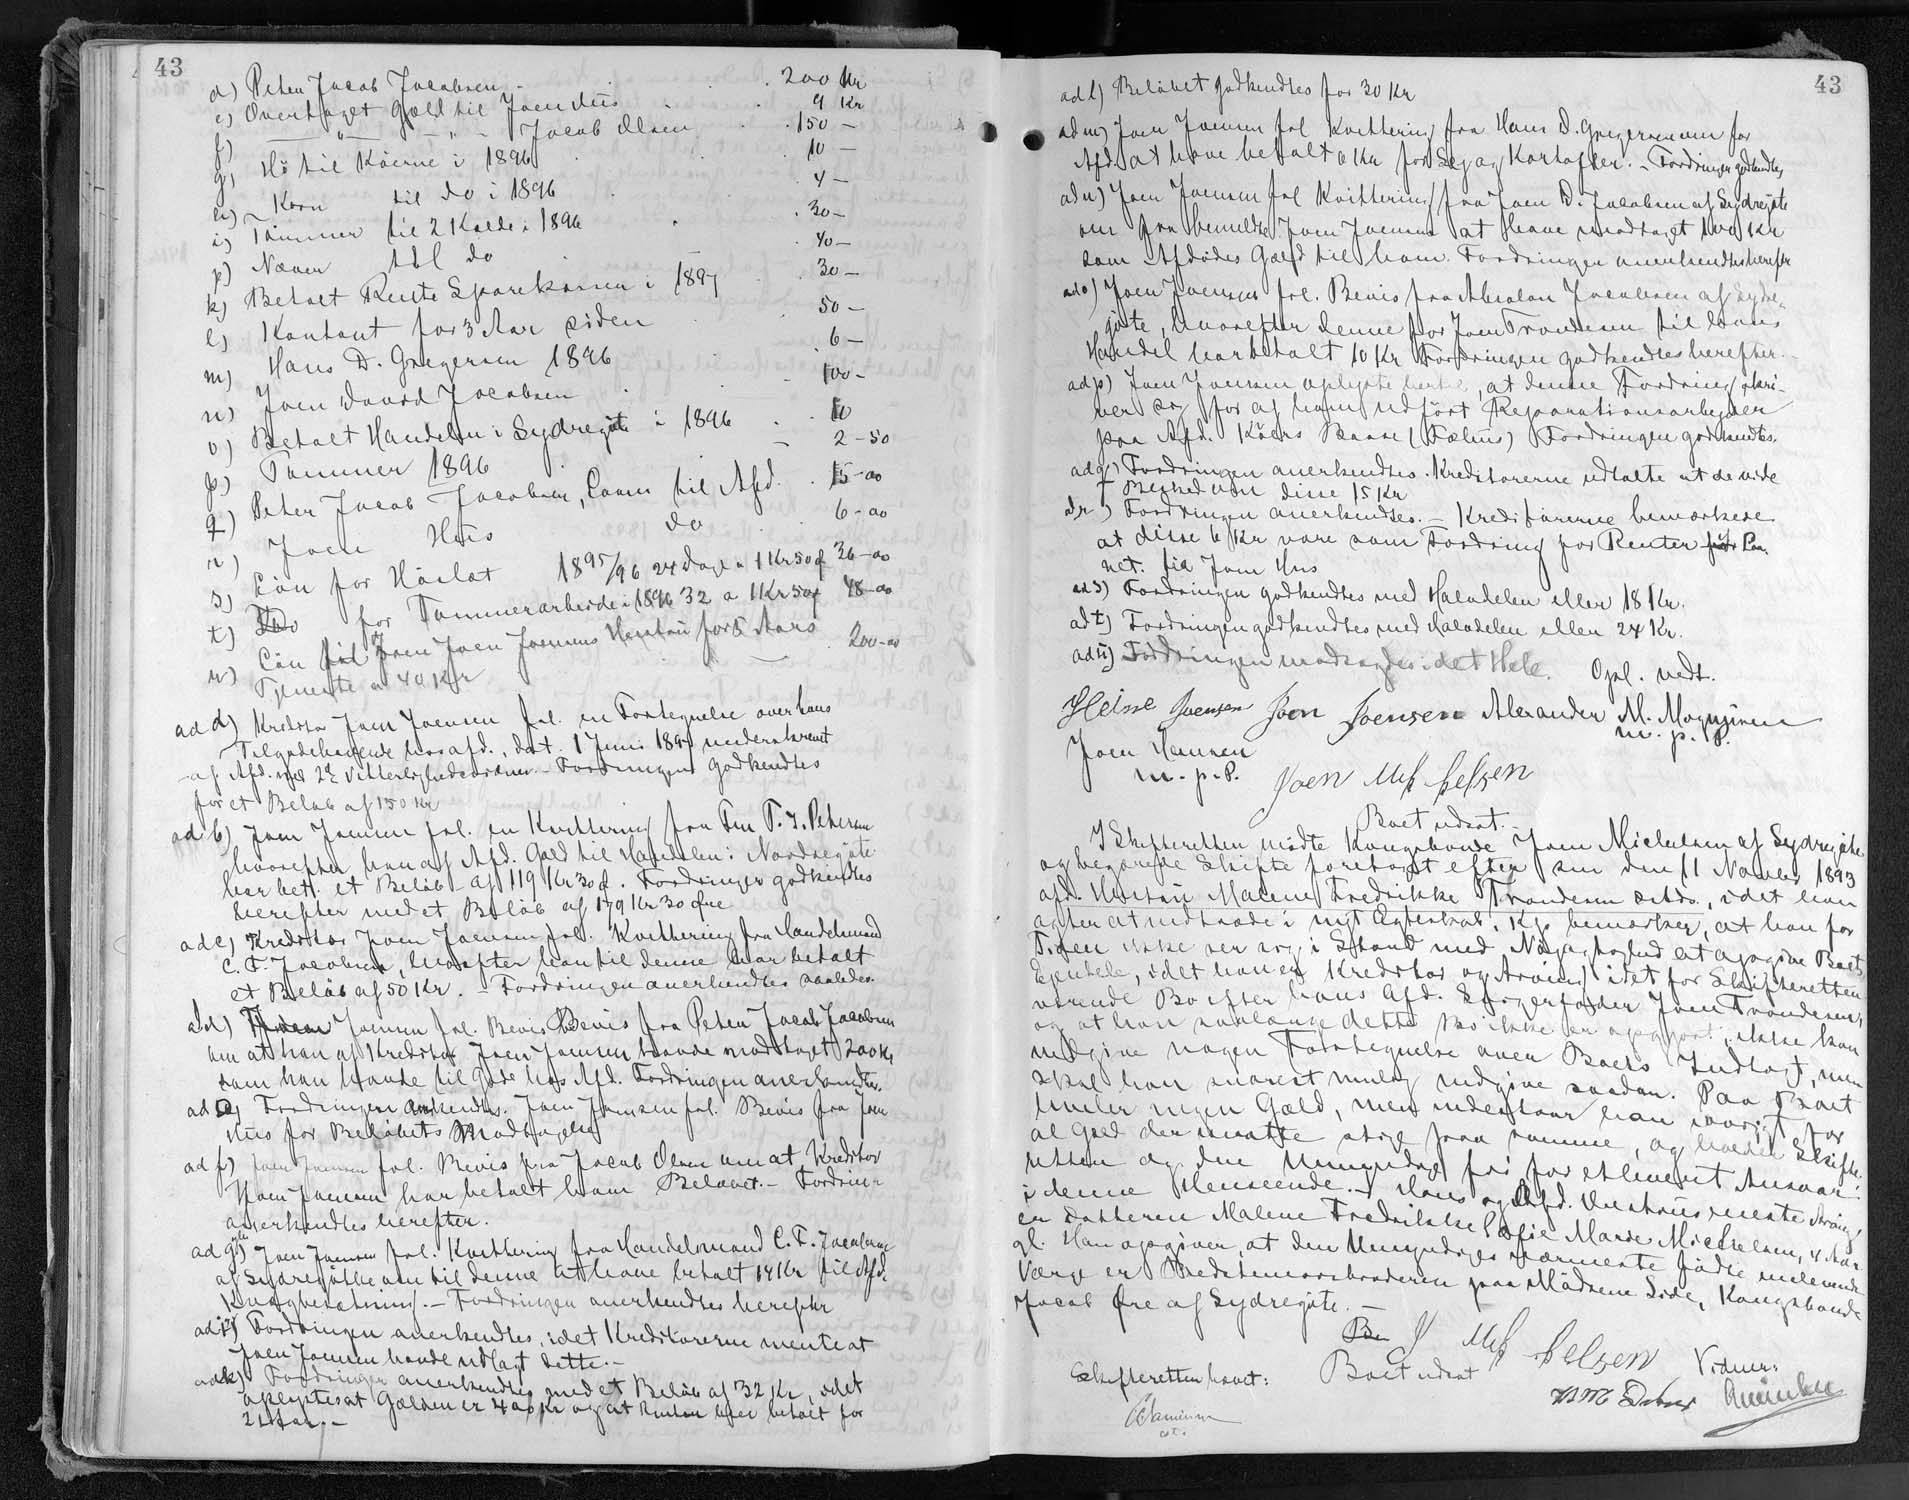 43
d) Peter Jacob Jacobsen . . 200 Kr
e) Overtaget Gæld til Joen Hüs . . 9 Kr
f) —"— — " - Jacob Olsen . . 150 —
g) Hö til Köerne i 1896 . . 10 —
h) Korn til do i 1896 . 4 —
i) Tömmer til 2 i 1896 . . 30 —
p) Næver til do . 40 —
k) Betalt Rente Sparekassen i 1897 . 30 —
l) Kontant for 3 Aar siden . . 50 —
m) Hans D. Gregersen 1896 . 6 —
n) Joen David Jacobsen . . 100 -
o) Betalt Handelen i Sydregöte i 1896 . . 10
p) Tömmer 1896 . — 2 - 50
q) Peter Jacob Jacobsen, Laan til Afd. . 15 - 00
r) Joen Hüs do . . 6 - 00
s) Lön for Höslæt 1895/96 24 Dage a 1 Kr 50 Ø 36 - 00
t) Do for Tømmerarbeide i 1896 32 a 1 Kr 50 Ø 48 - 00
u) Lön til Joen Joensens Hustru for 5 Aars
Tjeneste a 40 Kr . — . 200 - 00
ad a) Kreditor Joen Joensen frl. en Fortegnelse over hans
Tilgodehavende hos Afd., dat. 1 Juni 1897 underskrevet
af Afd. med 2 Vitterlighedsvidner. - Fordringen godkendtes
for et Beløb af 150 Kr
ad b) Joen Joensen frl. en Kvittering fra Fru P. J. Petersen
hvorefter han af Afd. Gæld til Handelen i Nordregöte
har bet. et Beløb af 119 Kr 30 Ø. Fordringen godkendtes
herefter med et Beløb af 179 Kr 30 Øre
ad c) Kreditor Joen Joensen frl. Kvittering fra Handelsmand
C. F. Jacobsen, hvorefter han til denne har betalt
et Beløb af 50 Kr. - Fordringen anerkendtes saaledes.
ad d) Joensen frl. Bevis Bevis fra Peter Jacob Jacobsen
om at han af Kreditor Joen Joensen havde modtaget 200 Kr
som han havde til Gode hos Afd. Fordringen anerkendtes.
ad e) Fordringen anerkendtes. Joen Joensen frl. Bevis fra Joen
Hüs for Beløbets Modtagelse
ad f) Joen Joensen frl. Bevis fra Jacob Olsen om at Kreditor
Joen Joensen har betalt ham Beløbet. - Fordringen
anerkendtes herefter.
ad g) Joen Joensen frl. Kvittering fra Handelsmand C. F. Jacobsen
af Sydregöte om til denne at have betalt 14 Kr til Afd.
Kvægbesætning. - Fordringen anerkendtes herefter
ad i) Fordringen anerkendtes, idet Kreditorerne mente at
Joen Joensen havde udlagt dette. -
ad k) Fordringen anerkendtes med et Beløb af 32 Kr, idet
oplystes at Gælden er 400 Kr og at Renten blev betalt for
2 Aar. -
43
ad l) Beløbet godkendtes for 30 Kr
ad m) Joen Joensen frl Kvittering fra Hans D. Gregersen om for
Afd. at have betalt 6 Kr for og Kartofler. - Fordringen godkendtes
ad n) Joen Joensen frl Kvittering fra Joen D. Jacobsen af Sydregöte
om fra bemeldte Joen Joensen at have modtaget 100 Kr
som Afdödes Gæld til ham. Fordringen anerkendtes herefter
ad o) Joen Joensen frl. Bevis fra Absalon Jacobsen af Sydre-
göte, hvorefter denne for Joen Trondesen til hans
Handel har betalt 10 Kr Fordringen godkendtes herefter. -
ad p) Joen Joensen oplyste hertil, at denne Fordring skri-
ver sig for af ham udført Reparationsarbejder
paa Afd. Köers Baase (Fæhüs) Fordringen godkendtes.
ad q) Fordringen anerkendtes. Kreditorerne udtalte at de vide
Besked om disse 15 Kr
ad r) Fordringen anerkendtes. - Kreditorerne bemærkede
at disse 6 Kr vare som Fordring for Renter for Laa-
net. fra Joen Hus
ad s) Fordringen godkendtes med Halvdelen eller 18 Kr.
ad t) Fordringen godkendtes med Halvdelen eller 24 Kr.
ad u) Fordringen modsagdes i det Hele. Opl. vedt.
Heine Joensen Joen Joensen Alexander M. Mognussen
m. p. P.
Joen Hansen
m. p. P. Joen Michelsen
Boet udsat. -
I Skifteretten mødte Kongsbonde Joen Michelsen af Sydregöte
og begærede Skifte foretaget efter sin den 11 Novbr 1893
afd. Hustru Malene Fredrikke Trondesen, idet han
agter at indtræde i nyt Ægteskab, Kp. bemærker, at han for
Tiden ikke ser sig i Stand med Nøjagtighed at opgive Boets
Ejendele, idet han er Kreditor og Arving i det for Skifteretten
værende Bo efter hans Afd. Svigerfader Joen Trondesen,
og at han saalænge dette Bo ikke er opgjort, ikke kan
udgive nogen Fortegnelse over Boets Indtægt, men
skal han snarest mulig udgive saadan. Paa Boet
hviler ingen Gæld, men indestaar han iövrigt for
al Gæld der maatte stige fra samme, og holder Skifte-
retten og den Umyndige fri for ethvert Ansvar
i denne Henseende. - Hans og Afd. Hustrus eneste Arving,
er Datteren Malene Fredrikke Sofie Marie Michelsen, 4 Aar
gl. Han opgiver, at den Umyndiges nærmeste födte
Værge er Bedstemoersbroderen paa Mödrene Side, Kongsbonde
Jacob Øre af Sydregöte. -
J Michelsen
Skifteretten hævet: Boet udsat Vidner: